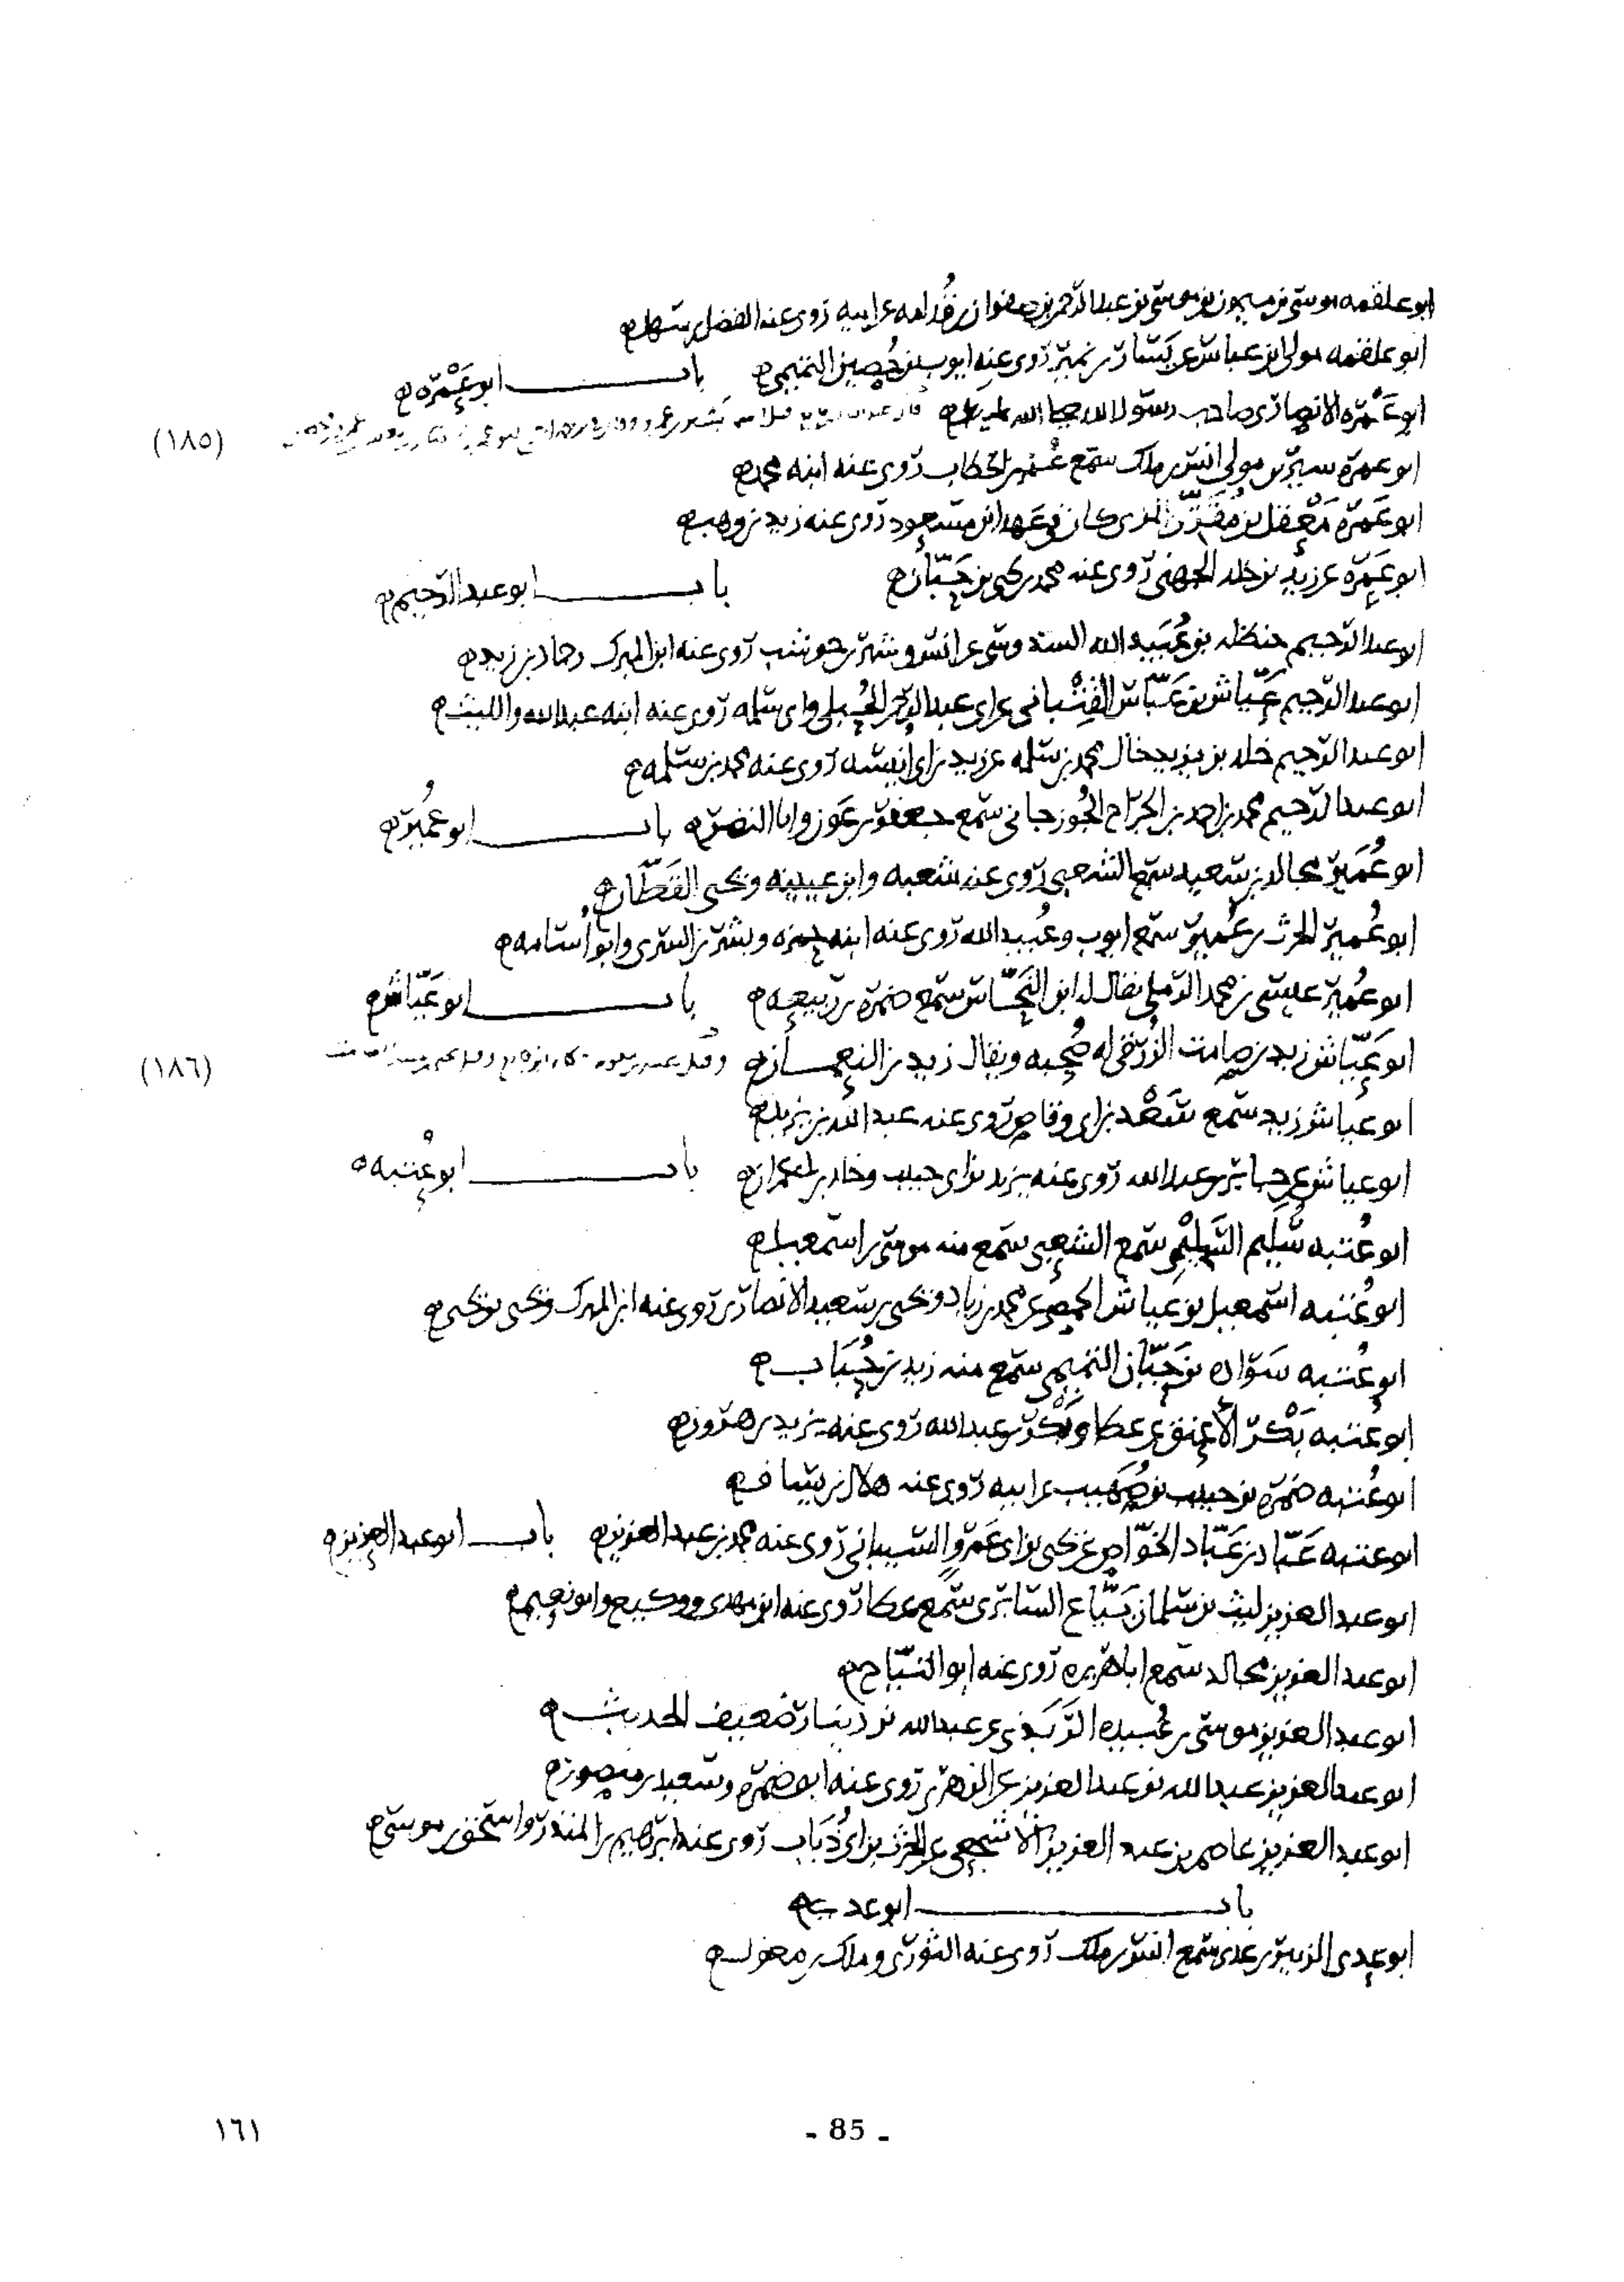 ابو علقمه موسى بن ميمون بن موسى بن عبد الرحمن بن صفوان بن قدامه عن ابيه روى عنه الفضل بن سهل
ابو علقمه مولى ابن عباس عن يسار بن نمير روى عنه ايوب بن حصين التميمي باب ابو عَمْرة
ابو عَمْرة الانصاري صاحب رسول الله صلى الله عليه
(١٨٥)
ابو عمرة سيرين مولى انس بن ملك سمع عُمَر بن الخطاب روى عنه ابنه محمد
ابو عَمرة مَعْقل بن مُقَرّن الذي كان في عهد ابن مسعود روى عنه زيد بن وهب
ابو عَمرة عن زيد بن خلد الجهني روى عنه محمد بن يحيى بن حَبّان باب ابو عبد الرحيم
ابو عبد الرحيم حنظله بن عُبَيد الله السدوسي عن انس وشهر بن حوشب روى عنه ابن المبرك وحماد بن زيد
ابو عبد الرحيم عَيّاش بن عَبّاس القِتْباني عن ابي عبد الرحمن الحُبلي وابي سلمه روى عنه ابنه عبد الله والليث
ابو عبد الرحيم خلد بن يزيد خال محمد بن سلمه عن زيد بن ابي انيسه روى عنه محمد بن سلمه
ابو عبد الرحيم محمد بن احمد بن الجراح الجُوزجاني سمع جعفر بن عَون وابا النضر باب ابو عُمَير
ابو عُمَير مجالد بن سعيد سمع الشعبي روى عنه شعبه وابن عيينه ويحيى القَطّان
ابو عُمير الحرث بن عُمير سمع ايوب وعُبيد الله روى عنه ابنه حمزه وبشر بن السري وابو أسامه
ابو عُمير عيسى بن محمد الرملي يقال له ابن النَحّاس سمع ضمرة بن ربيعه باب ابو عَيّاش
ابو عَيّاش زيد بن صامت الزُرَقي له صُحبه ويقال زيد بن النعمان
(١٨٦)
ابو عياش زيد سمع سَعْد بن ابي وقاص روى عنه عبد الله بن يزيد
ابو عياش عن جابر بن عبد الله روى عنه يزيد بن ابي حبيب وخلد بن ابي عمران باب ابو عُتْبه
ابو عُتبه سُلَيم السَلِيْمي سمع الشعبي سمع منه موسى بن اسمعيل
ابو عُتبه اسمعيل بن عياش الحمصي عن محمد بن زياد ويحيى بن سعيد الانصاري روى عنه ابن المبرك ويحيى بن يحيى
ابو عُتبه سَوّاده بن حَبّان التميمي سمع منه زيد بن حُبَاب
ابو عُتبه بَكْر الأعنق عن عطا وبَكْر بن عبد الله روى عنه يزيد بن هرون
ابو عُتبه ضمرة بن حبيب بن صُهَيب عن ابيه روى عنه هلال بن يساف
ابو عتبه عَبّاد بن عَبّاد الخَوّاص عن يحيى بن ابي عَمرو السيباني روى عنه محمد بن عبد العزيز باب ابو عبد العزيز
ابو عبد العزيز ليث بن سلمان بَيّاع السابري سمع عطا روى عنه ابن مهدي ووكيع وابو نعيم
ابو عبد العزيز مجالد سمع ابا هريره روى عنه ابو التَيّاح
ابو عبد العزيز موسى بن عُبيده الرَبَذي عن عبد الله بن دينار ضعيف الحديث
ابو عبد العزيز عبد الله بن عبد العزيز عن الزهري روى عنه ابو ضمره وسعيد بن منصور
ابو عبد العزيز عاصم بن عبد العزيز الأشجعي عن الحرث بن ابي ذُبَاب روى عنه ابرهيم بن المنذر واسحق بن موسى
باب ابو عدي
ابو عدي الزبير بن عدي سمع انس بن ملك روى عنه الثوري وملك بن مغول
- 85 -
١٦١